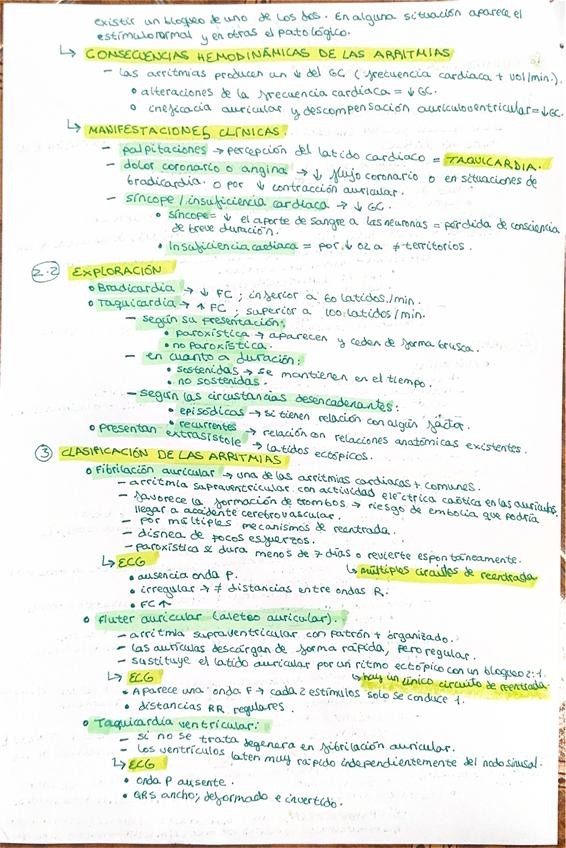 existir un bloqueo de uno de los dos. En alguna situación aparece el
estímulo normal y en otras el patológico.
↳ CONSECUENCIAS HEMODINÁMICAS DE LAS ARRITMIAS
- Las arritmias producen un ↓ del GC (frecuencia cardiaca + vol/min.).
• alteraciones de la frecuencia cardiaca = ↓ GC.
• ineficacia auricular y descompensación auriculoventricular = ↓ GC.
↳ MANIFESTACIONES CLÍNICAS.
- palpitaciones → percepción del latido cardiaco = TAQUICARDIA.
- dolor coronario o angina → ↓ flujo coronario o en situaciones de
bradicardia o por ↓ contracción auricular.
- síncope / insuficiencia cardiaca → ↓ GC.
• síncope = ↓ el aporte de sangre a las neuronas = pérdida de consciencia
de breve duración.
• Insuficiencia cardiaca = por ↓ O2 a ≠ territorios.
2.2 EXPLORACIÓN
• Bradicardia → ↓ FC ; inferior a 60 latidos/min.
• Taquicardia → ↑ FC ; superior a 100 latidos/min.
- según su presentación:
• paroxística → aparecen y ceden de forma brusca.
• no paroxística.
- en cuanto a duración:
• sostenidas → se mantienen en el tiempo.
• no sostenidas.
- según las circustancias desencadenantes:
• episódicas → si tienen relación con algún factor.
• recurrentes → relación con relaciones anatómicas existentes.
• presentan extrasístole → latidos ectópicos.
3 CLASIFICACIÓN DE LAS ARRITMIAS
• Fibrilación auricular → una de las arritmias cardiacas + comunes.
- arritmia supraventricular con actividad eléctrica caótica en las aurículas.
- favorece la formación de trombos → riesgo de embolia que podría
llegar a accidente cerebrovascular.
- por múltiples mecanismos de reentrada.
- disnea de pocos esfuerzos.
- paroxística si dura menos de 7 días o revierte espontáneamente.
↳ ECG ↳ múltiples circuitos de reentrada
• ausencia onda P.
• irregular → ≠ distancias entre ondas R.
• FC ↑
• Fluter auricular (aleteo auricular).
- arritmia supraventricular con patrón + organizado.
- las aurículas descargan de forma rápida, pero regular.
- sustituye el latido auricular por un ritmo ectópico con un bloqueo 2:1.
↳ ECG ↳ hay un único circuito de reentrada
• Aparece una onda F → cada 2 estímulos solo se conduce 1.
• distancias RR regulares.
• Taquicardia ventricular:
- si no se trata degenera en fibrilación auricular.
- los ventrículos laten muy rápido independientemente del nodo sinusal.
↳ ECG
• onda P ausente.
• QRS ancho, deformado e invertido.